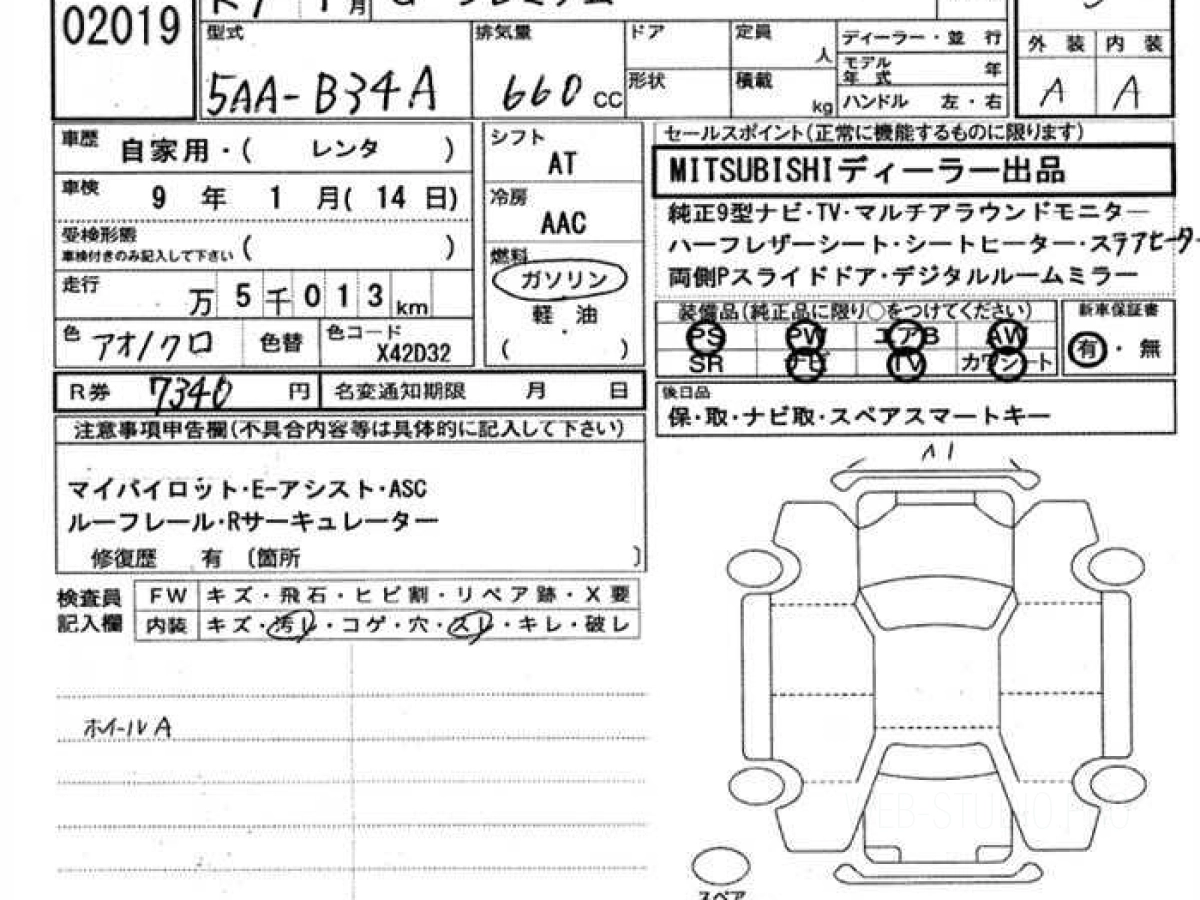 02019
型式 5AA-B34A
排気量 660 cc
ドア
形状
定員 人
積載 kg
ディーラー・並 行
モデル年式 年
ハンドル 左・右
外 装 内 装
A A
車歴 自家用・( レンタ )
車検 9 年 1 月( 14 日)
受検形態
車検付きのみ記入して下さい ( )
走行 万 5 千 0 1 3 km
色 アオ/クロ 色替 色コード X42D32
シフト
AT
冷房
AAC
燃料
ガソリン
軽・油
( )
セールスポイント(正常に機能するものに限ります)
MITSUBISHIディーラー出品
純正9型ナビ・TV・マルチアラウンドモニター
ハーフレザーシート・シートヒーター・ステアヒーター
両側Pスライドドア・デジタルルームミラー
装備品(純正品に限り○をつけてください)
PS PW エアB AW
SR ナビ TV カワシート
新車保証書
有・無
R券 7340 円 名変通知期限 月 日
後日品
保・取・ナビ取・スペアスマートキー
注意事項申告欄(不具合内容等は具体的に記入して下さい)
マイパイロット・E-アシスト・ASC
ルーフレール・Rサーキュレーター
修復歴 有 〔箇所 〕
検査員記入欄
FW キズ・飛石・ヒビ割・リペア跡・X要
内装 キズ・汚レ・コゲ・穴・スレ・キレ・破レ
ホイールA
A1
スペア
WEB-STUDIO.PRO